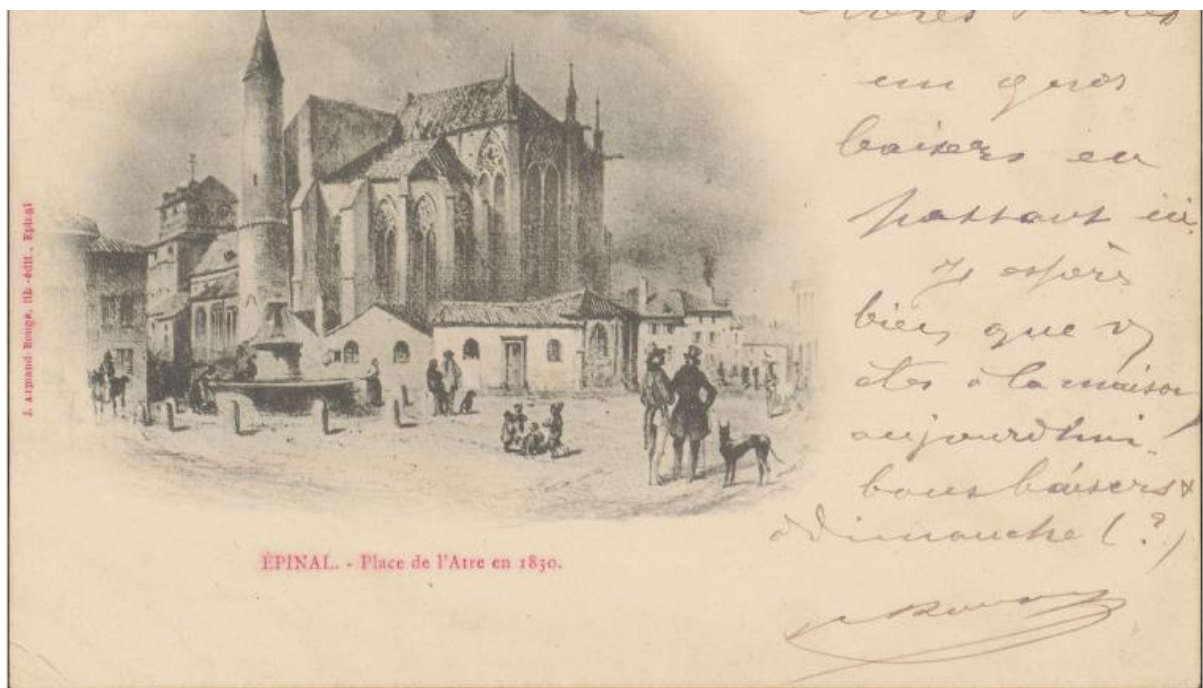 J. Armand-Rouge, lib.-édit. Epinal
ÉPINAL. - Place de l'Atre en 1830.
un gros
baisers en
passant ici
J'espère
bien que v
êtes à la maison
aujourd'hui.
bons baisers &
à Dimanche (?)